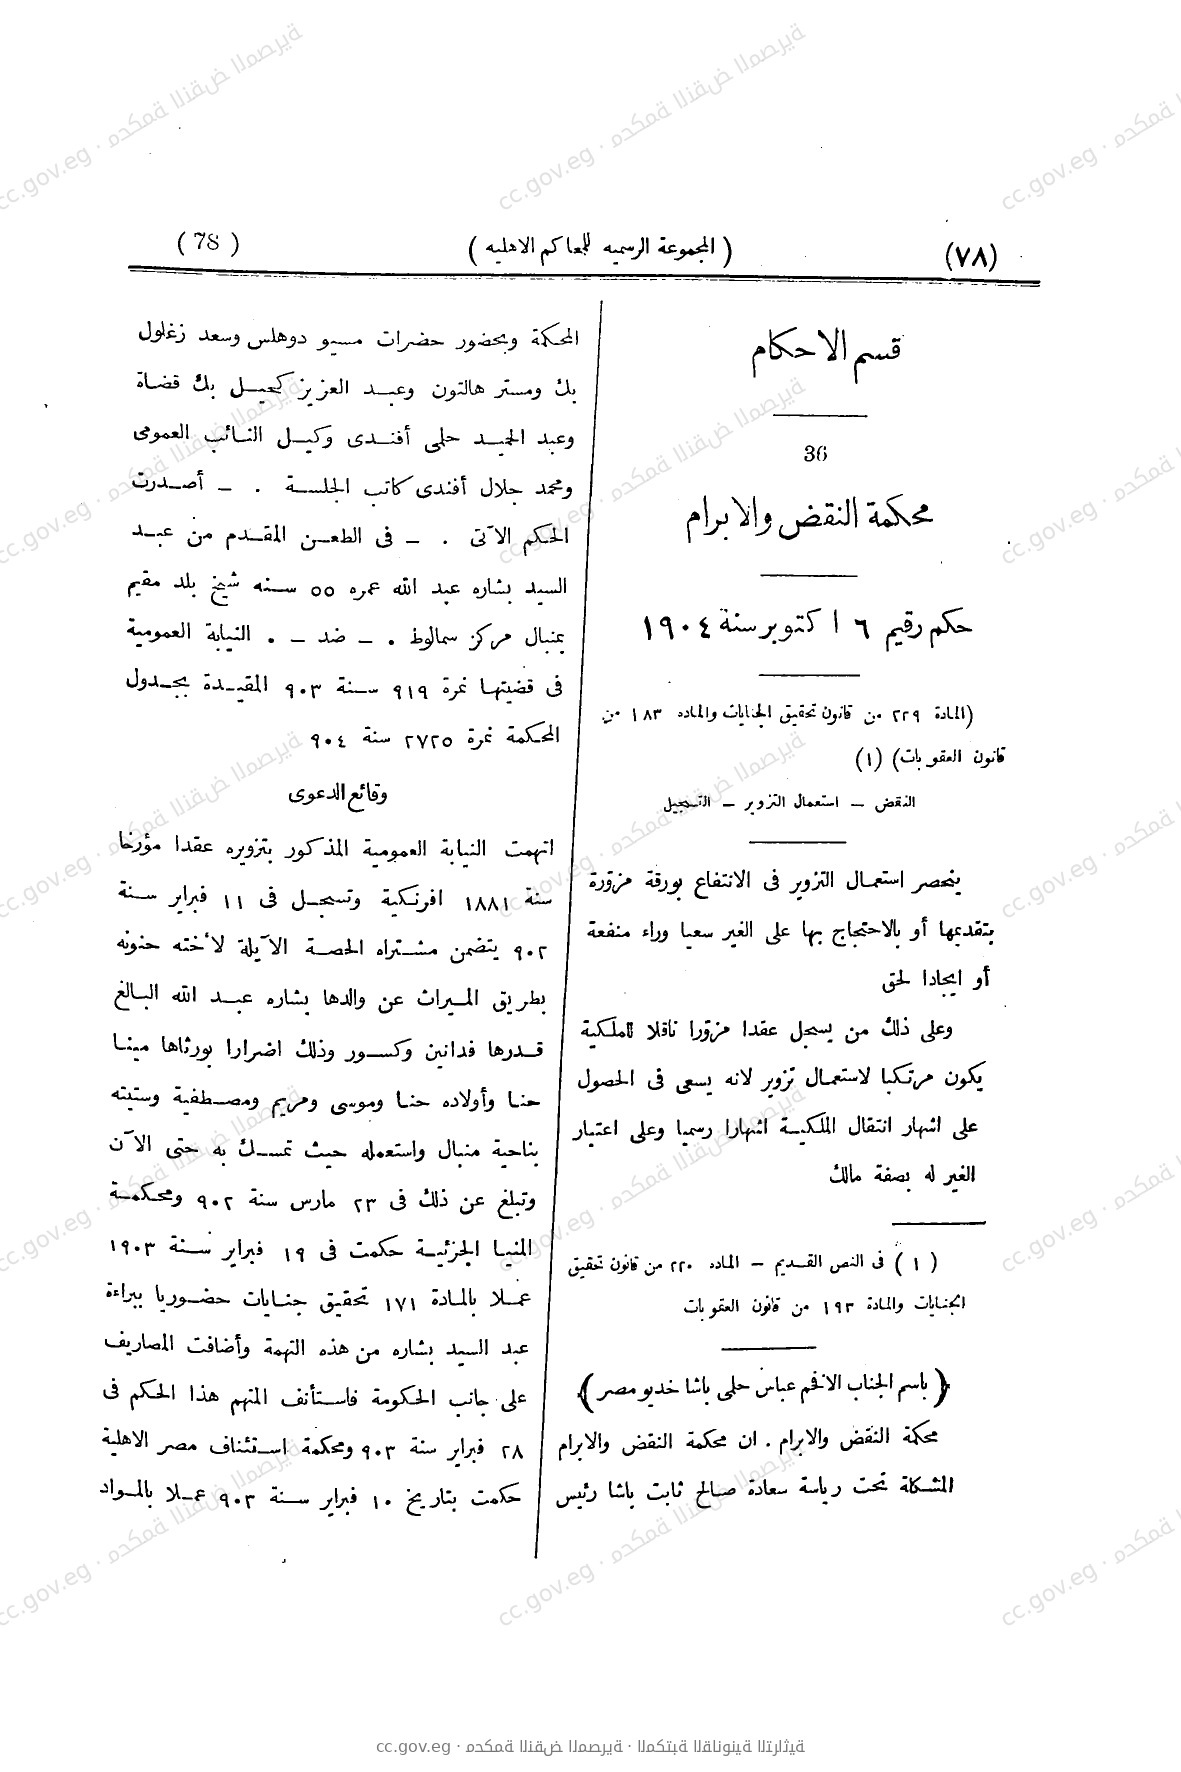 (٧٨)
( المجموعة الرسميه للمحاكم الاهليه )
( 78 )
قسم الاحكام
36
محكمة النقض والابرام
حكم رقيم ٦ اكتوبر سنة ١٩٠٤
(المادة ٢٢٩ من قانون تحقيق الجنايات والماده ١٨٣ من
قانون العقوبات) (١)
النقض — استعمال التزوير — التسجيل
ينحصر استعمال التزوير فى الانتفاع بورقة مزوّرة
بتقديمها أو بالاحتجاج بها على الغير سعيا وراء منفعة
أو ايجادا لحق
وعلى ذلك من يسجل عقدا مزوّرا ناقلا للملكية
يكون مرتكبا لاستعمال تزوير لانه يسعى فى الحصول
على اشهار انتقال الملكية اشهارا رسميا وعلى اعتبار
الغير له بصفة مالك
( ١ ) فى النص القديم — الماده ٢٢٠ من قانون تحقيق
الجنايات والمادة ١٩٣ من قانون العقوبات
( باسم الجناب الافخم عباس حلمى باشا خديو مصر )
محكمة النقض والابرام . ان محكمة النقض والابرام
المشكلة تحت رياسة سعادة صالح ثابت باشا رئيس
المحكمة وبحضور حضرات مسيو دوهلس وسعد زغلول
بك ومستر هالتون وعبد العزيز كحيل بك قضاة
وعبد الحميد حلمى أفندى وكيل النائب العمومى
ومحمد جلال أفندى كاتب الجلسة . — أصدرت
الحكم الآتى . — فى الطعن المقدم من عبد
السيد بشاره عبد الله عمره ٥٥ سنه شيخ بلد مقيم
بمنبال مركز سمالوط . — ضد — . النيابة العمومية
فى قضيتها نمرة ٩١٩ سنة ٩٠٣ المقيدة بجدول
المحكمة نمرة ٢٧٢٥ سنة ٩٠٤
وقائع الدعوى
اتهمت النيابة العمومية المذكور بتزويره عقدا مؤرخا
سنة ١٨٨١ افرنكية وتسجل فى ١١ فبراير سنة
٩٠٢ يتضمن مشتراه الحصة الآيلة لأخته حنونه
بطريق الميراث عن والدها بشاره عبد الله البالغ
قدرها فدانين وكسور وذلك اضرارا بورثاها مينا
حنا وأولاده حنا وموسى ومريم ومصطفية وستيته
بناحية منبال واستعمله حيث تمسك به حتى الآن
وتبلغ عن ذلك فى ٢٣ مارس سنة ٩٠٢ ومحكمة
المنيا الجزئية حكمت فى ١٩ فبراير سنة ١٩٠٣
عملا بالمادة ١٧١ تحقيق جنايات حضوريا ببراءة
عبد السيد بشاره من هذه التهمة وأضافت المصاريف
على جانب الحكومة فاستأنف المتهم هذا الحكم فى
٢٨ فبراير سنة ٩٠٣ ومحكمة استئناف مصر الاهلية
حكمت بتاريخ ١٠ فبراير سنة ٩٠٣ عملا بالمواد
cc.gov.eg · محكمة النقض المصرية · المكتبة القانونية التراثية